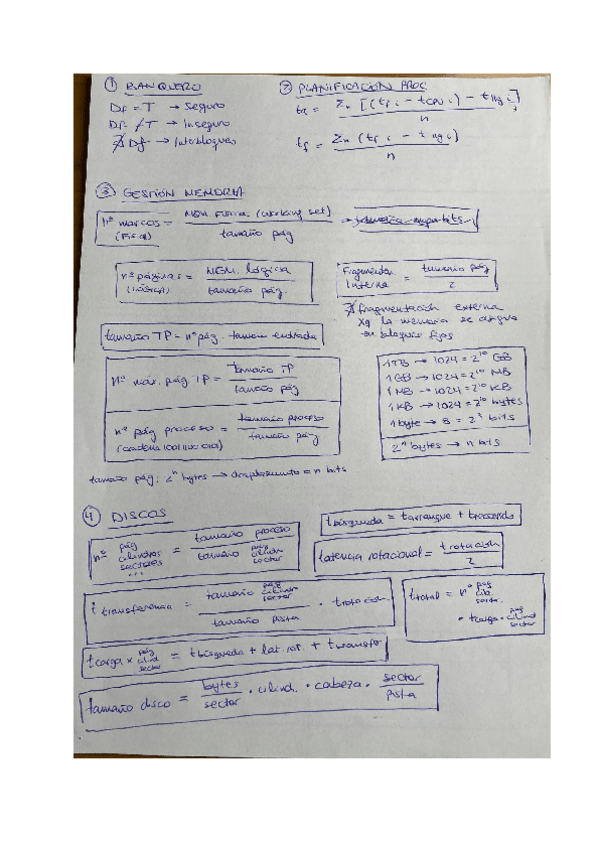 ① BANQUERO
Df = T → Seguro
Df ≠ T → Inseguro
∄ Df → Interbloqueo
② PLANIFICACIÓN PROC.
= Σn [(tfi - tCPUi) - tllegi] / n
= Σn (tfi - tllegi) / n
③ GESTIÓN MEMORIA
nº marcos (Física) = MEM FÍSICA (Working set) / tamaño pág
nº páginas (lógica) = MEM. lógica / tamaño pág.
Fragmentación Interna = tamaño pág / 2
∄ fragmentación externa
xq la memoria se asigna
en bloques fijos
tamaño TP = nº pág · tamaño entrada
Nº máx. pág TP = tamaño TP / tamaño pág
nº pág proceso = tamaño proceso / tamaño pág
1 TB → 1024 = 2^10 GB
1 GB → 1024 = 2^10 MB
1 MB → 1024 = 2^10 KB
1 KB → 1024 = 2^10 bytes
1 byte → 8 = 2^3 bits
2^n bytes → n bits
tamaño pág: 2^n bytes → desplazamiento = n bits
④ DISCOS
nº pág cilindros sectores ... = tamaño proceso / tamaño pág cilindr sector
t búsqueda = t arranque + t recorrido
latencia rotacional = t rotación / 2
t transferencia = tamaño pág cilindro sector / tamaño pista · t rotación
t total = nº pág cilin. sector · t carga x pág cilind sector
t carga x pág cilind sector = t búsqueda + lat. rot. + t transfer
tamaño disco = bytes / sector · cilind. · cabeza · sector / pista